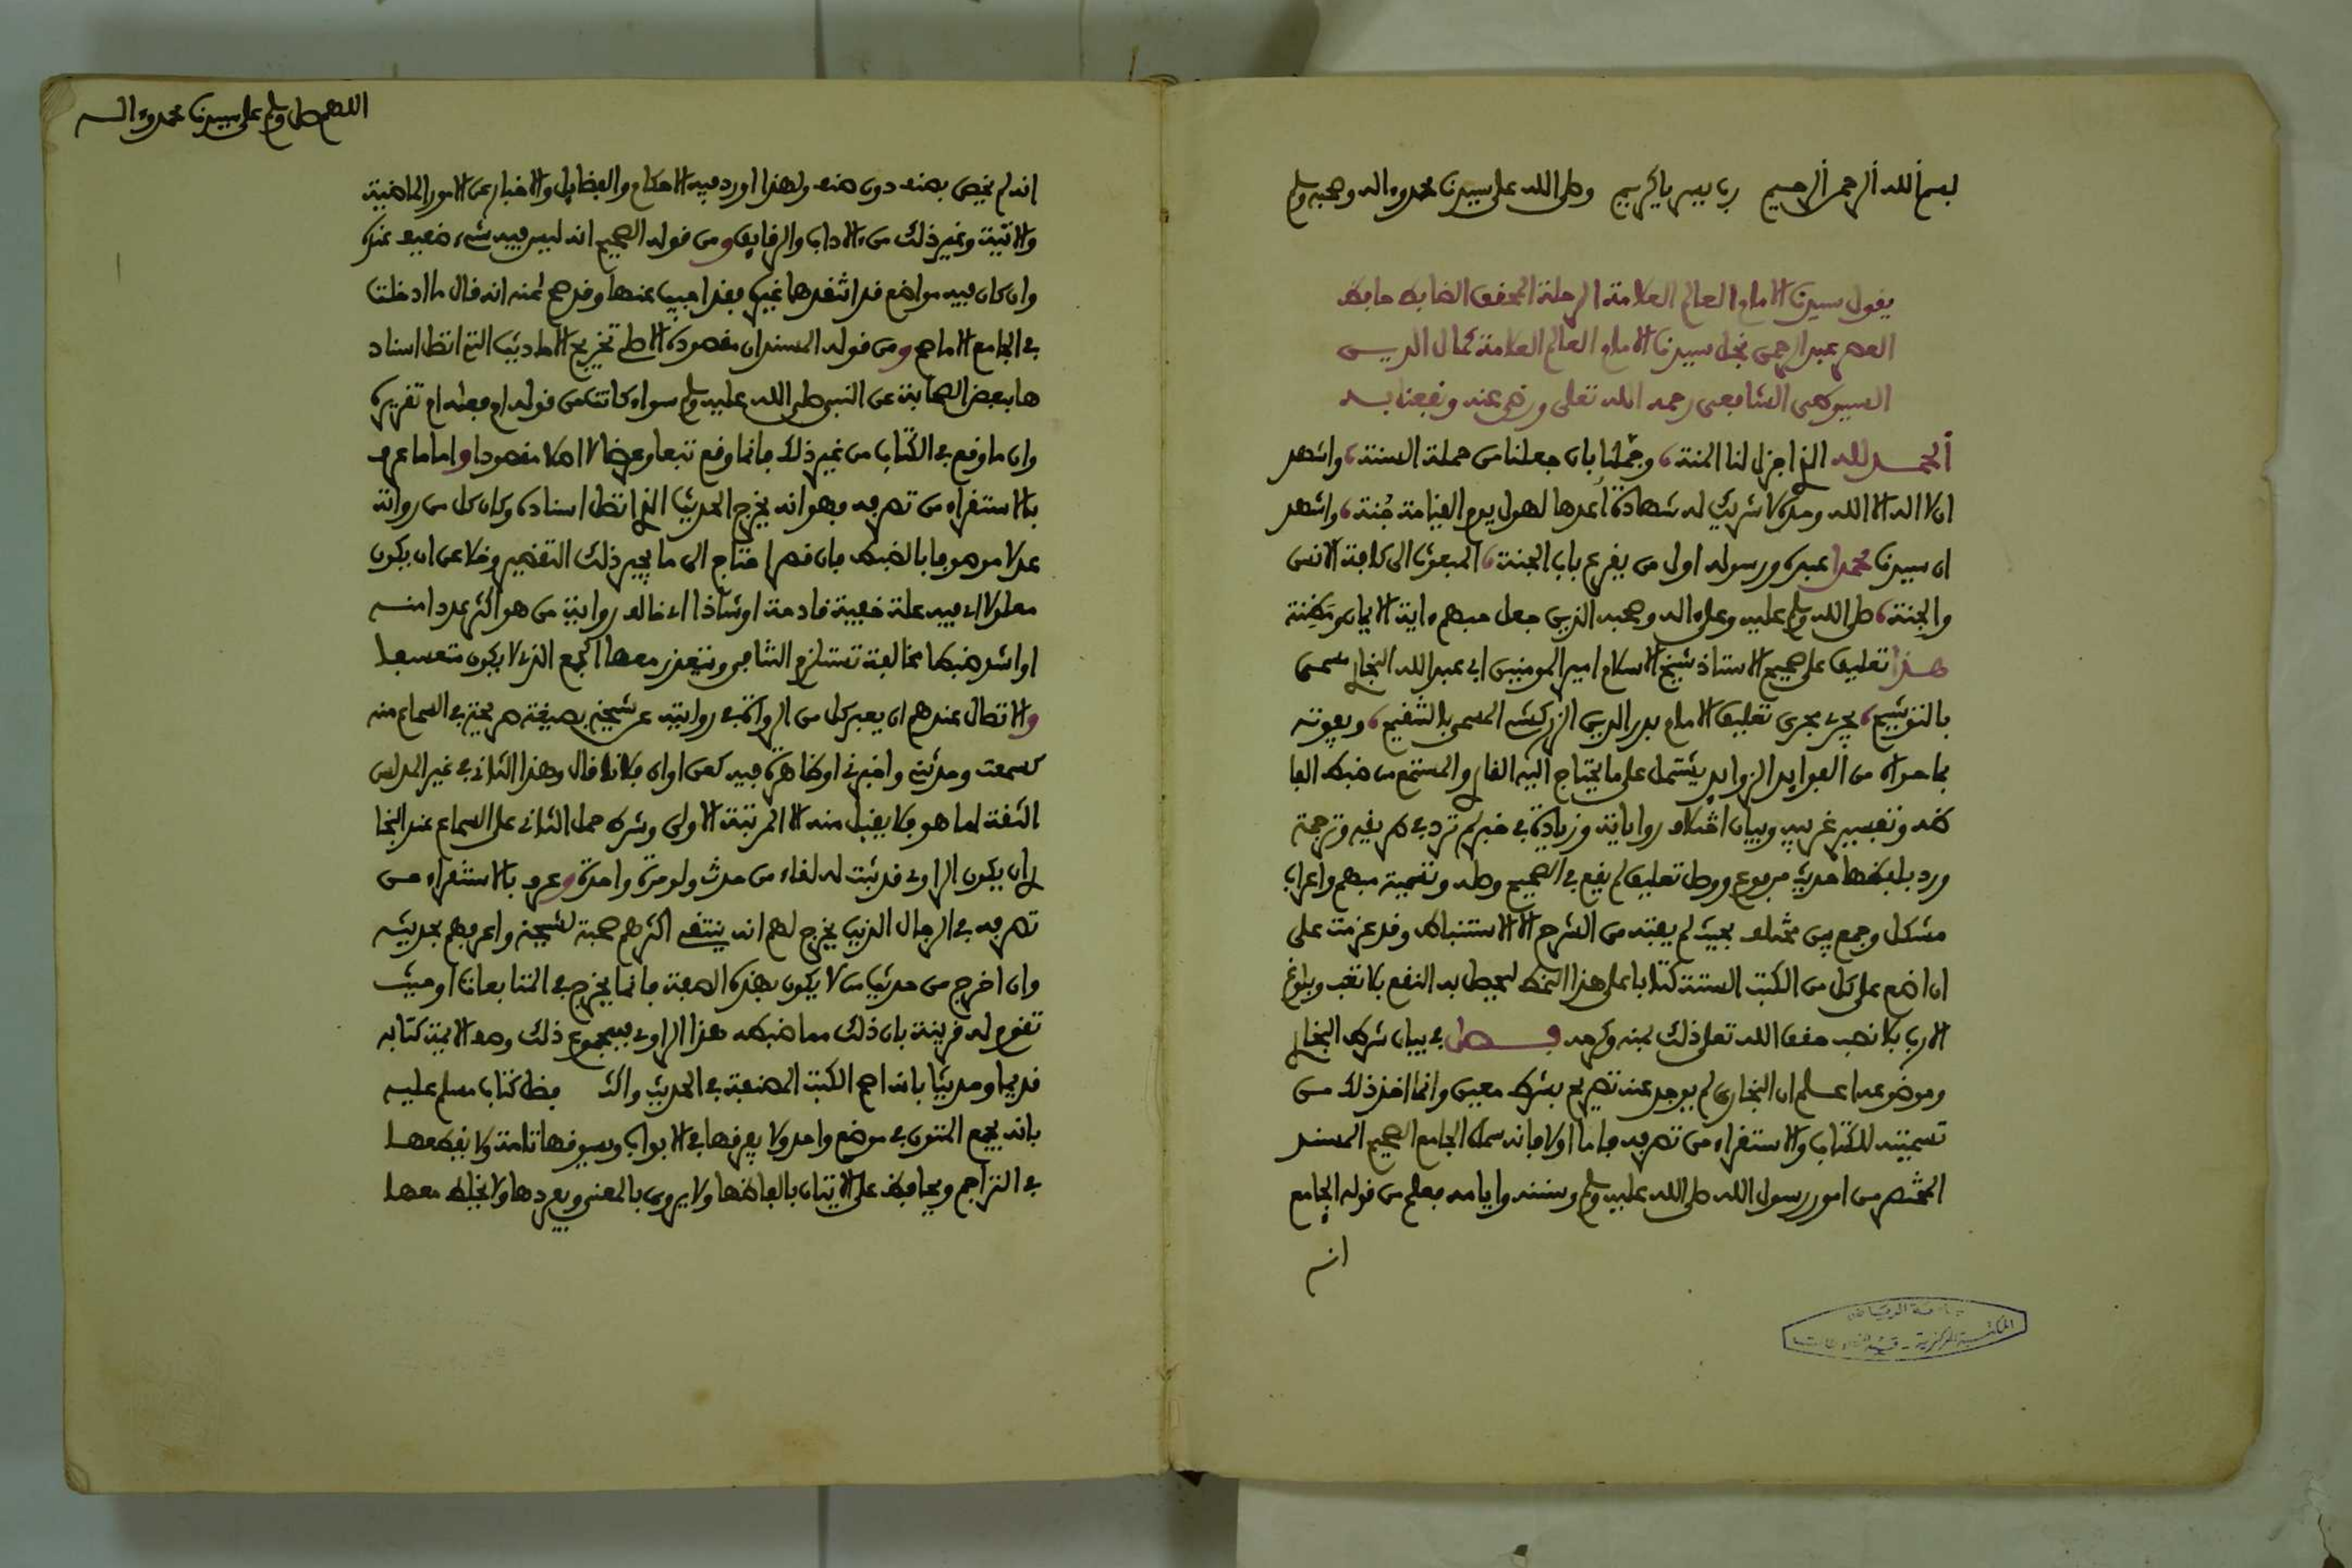 بسم الله الرحمن الرحيم رب يسر يا كريم وصلى الله على سيدنا محمد وءاله وصحبه وسلم
يقول سيدنا الامام العالم العلامة الرحلة المحقق الضابط حافظ
العصر عبد الرحمن نجل سيدنا الامام العالم العلامة كمال الديـن
السيوطي الشافعي رحمه الله تعلى ورضي عنه ونفعنا بـه
الحمــد لله الذي اجزل لنا المنة، وجملنا بان جعلنا من حملة السنة، واشهد
ان لا اله الا الله وحده لا شريك له شهادة اعدها لهول يوم القيامة جُنة، واشهد
ان سيدنا محمدا عبده ورسوله اول من يقرع باب الجنة، المبعوث الى كافة الانس
والجنة، صلى الله وسلم عليه وعلى ءاله وصحبه الذين جعل حبهم ءاية الايمان ومَظِنة
هــذا تعليق على صحيح الاستاذ شيخ الاسلام امير المومنين ابي عبد الله البخاري مسمى
بالتوشيح، يجري مجرى تعليق الامام بدر الدين الزركشي المسمى بالتنقيح، ويفوته
بما حواه من الفوايد الزوايد يشتمل على ما يحتاج اليه القاري والمستمع من ضبط الفا
ظه وتفسير غريبه وبيان اختلاف رواياته وزيادة في خبر لم ترد في طريقه وترجمة
ورد بلفظها حديث مرفوع ووصل تعليق لم يقع في الصحيح وصله وتسمية مبهم واعراب
مشكل وجمع بين مختلف بحيث لم يفته من الشرح الا الاستنباط وقد عزمت على
ان اضع على كل من الكتب الستة كتابا على هذا النمط ليحصل به النفع بلا تعب وبلوغ
الارب بلا نصب حقق الله تعلى ذلك بمنه وكرمه فــصل في بيان شرط البخاري
وموضوعه اعـلم ان البخاري لم يوجد عنه تصريح بشرط معين وانما اخذ ذلك مـن
تسميته للكتاب والاستقراء من تصرفه فاما اولا فانه سماه الجامع الصحيح المسند
المختصر من امور رسول الله صلى الله عليه وسلم وسننه وايامه فعلم من قوله الجامع
انه
جامعة الرياض
المكتبة المركزية - قسم المخطوطات
اللهم صل وسلم على سيدنا محمد وءالـه
انه لم يخص بصنف دون صنف ولهذا اورد فيه الاحكام والفضايل والاخبار عن الامور الماضية
والاتية وغير ذلك من الاداب والرقايق ومن قوله الصحيح انه ليس فيه شيء ضعيف عنده
وان كان فيه مواضع قد انتقدها غيره فقد اجيب عنها وقد صح عنه انه قال ما ادخلت
في الجامع الا ما صح ومن قوله المسند ان مقصوده الاصلي تخريج الاحاديث التي اتصل اسناد
ها ببعض الصحابة عن النبي صلى الله عليه وسلم سواء كانت من قوله ام فعله ام تقريره
وان ما وقع في الكتاب من غير ذلك فانما وقع تبعا وعرضا لا اصلا مقصودا واما ما عرف
بالاستقراء من تصرفه فهو انه يخرج الحديث الذي اتصل اسناده وكان كل من رواته
عدلا موصوفا بالضبط فان قصر احتاج الى ما يجبر ذلك التقصير وخلا عن ان يكون
معلولا اي فيه علة خفية قادحة او شاذا اي خالف روايته من هو اكثر عددا منـه
او اشد ضبطا مخالفة تستلزم التنافي ويتعذر معها الجمع الذي لا يكون متعسفـا
والاتصال عندهم ان يعبر كل من الرواة في روايته عن شيخه بصيغة صريحة في السماع منه
كسمعت وحدثني واخبرني او ظاهرة فيه كعن او ان فلانا قال وهذا الثاني في غير المدلس
الثقة اما هو فلا يقبل منه الا المرتبة الاولى وشرط حمل الثاني على السماع عند البخا
ري ان يكون الراوي قد ثبت له لقاء من حدث ولو مرة واحدة وعرف بالاستقراء مـن
تصرفه في الرجال الذين يخرج لهم انه ينتقي اكثرهم صحبة لشيخه واعرفهم بحديثـه
وان اخرج من حديث من لا يكون بهذه الصفة فانما يخرج في المتابعات او حيـث
تقوم له قرينة بان ذلك مما ضبطه هذا الراوي فبمجموع ذلك وصف الايمة كتابه
قديما وحديثا بانه اصح الكتب المصنفة في الحديث واكثر فضل كتاب مسلم عليـه
بانه يجمع المتون في موضع واحد ولا يفرقها في الابواب ويسوقها تامة ولا يقطعهـا
في التراجم ويحافظ على الاتيان بالفاظها ولا يروي بالمعنى ويفردها ولا يخلط معهـا